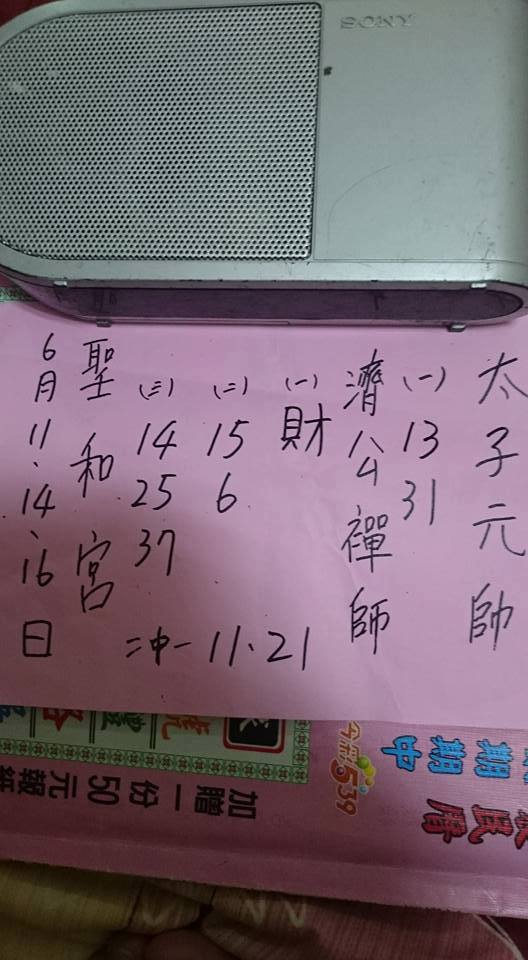 SONY
太子元帥
(一) 13 31
濟公禪師
(一) 財
(二) 15 6
(三) 14 25 37
二中一 11、21
聖和宮
6月11、14、16日
今彩539
期期中
加贈一份50元報紙